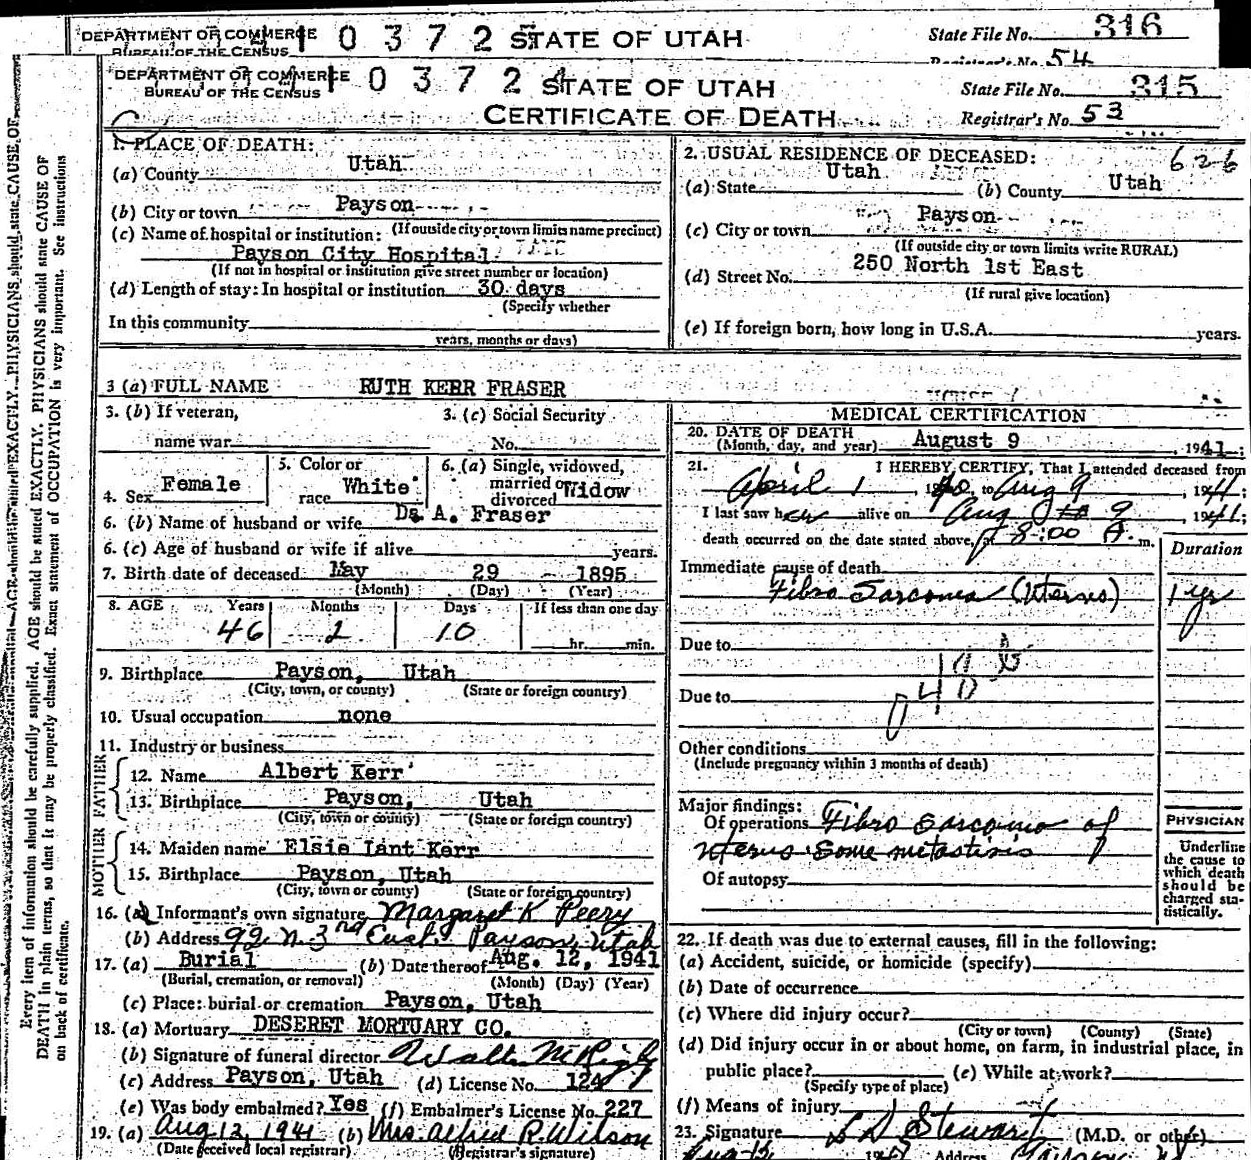 DEPARTMENT OF COMMERCE
BUREAU OF THE CENSUS
10372
STATE OF UTAH
State File No. 316
Registrar's No. 54
DEPARTMENT OF COMMERCE
BUREAU OF THE CENSUS
10372
STATE OF UTAH
CERTIFICATE OF DEATH
State File No. 315
Registrar's No. 53
626
1. PLACE OF DEATH:
(a) County Utah
(b) City or town Payson
(If outside city or town limits name precinct)
(c) Name of hospital or institution:
Payson City Hospital
(If not in hospital or institution give street number or location)
(d) Length of stay: In hospital or institution 30 days
(Specify whether
In this community
years, months or days)
2. USUAL RESIDENCE OF DECEASED:
(a) State Utah (b) County Utah
(c) City or town Payson
(If outside city or town limits write RURAL)
(d) Street No. 250 North 1st East
(If rural give location)
(e) If foreign born, how long in U.S.A. years.
3 (a) FULL NAME RUTH KERR FRASER
3. (b) If veteran,
name war
3. (c) Social Security
No.
4. Sex Female
5. Color or
race White
6. (a) Single, widowed,
married or
divorced Widow
6. (b) Name of husband or wife D. A. Fraser
6. (c) Age of husband or wife if alive years.
7. Birth date of deceased May 29 1895
(Month) (Day) (Year)
8. AGE Years Months Days If less than one day
46 2 10 hr. min.
9. Birthplace Payson, Utah
(City, town, or county) (State or foreign country)
10. Usual occupation none
11. Industry or business
FATHER
12. Name Albert Kerr
13. Birthplace Payson, Utah
(City, town or county) (State or foreign country)
MOTHER
14. Maiden name Elsie Tant Kerr
15. Birthplace Payson, Utah
(City, town or county) (State or foreign country)
16. (a) Informant's own signature Margaret K Peery
(b) Address 92 N. 3rd East Payson, Utah
17. (a) Burial (b) Date thereof Aug. 12, 1941
(Burial, cremation, or removal) (Month) (Day) (Year)
(c) Place: burial or cremation Payson, Utah
18. (a) Mortuary DESERET MORTUARY CO.
(b) Signature of funeral director
(c) Address Payson, Utah (d) License No. 124
(e) Was body embalmed? Yes (f) Embalmer's License No. 227
19. (a) Aug 12, 1941 (b) Mrs. Alfred R. Wilson
(Date received local registrar) (Registrar's signature)
MEDICAL CERTIFICATION
20. DATE OF DEATH
(Month, day, and year) August 9, 1941;
21. I HEREBY CERTIFY, That I attended deceased from
April 1, 1940, to Aug 9, 1941;
I last saw her alive on Aug 9, 1941;
death occurred on the date stated above, at 8:00 A. m.
Duration
Immediate cause of death
Fibro Sarcoma (Uterus) 1 yr
Due to
Due to
Other conditions
(Include pregnancy within 3 months of death)
Major findings:
Of operations Fibro sarcoma of
uterus some metastisis
Of autopsy
PHYSICIAN
Underline
the cause to
which death
should be
charged sta-
tistically.
22. If death was due to external causes, fill in the following:
(a) Accident, suicide, or homicide (specify)
(b) Date of occurrence
(c) Where did injury occur?
(City or town) (County) (State)
(d) Did injury occur in or about home, on farm, in industrial place, in
public place? (e) While at work?
(Specify type of place)
(f) Means of injury
23. Signature L D Stewart (M.D. or other)
Address Payson
Every item of information should be carefully supplied. AGE should be stated EXACTLY. PHYSICIANS should state CAUSE OF
DEATH in plain terms, so that it may be properly classified. Exact statement of OCCUPATION is very important. See instructions
on back of certificate.